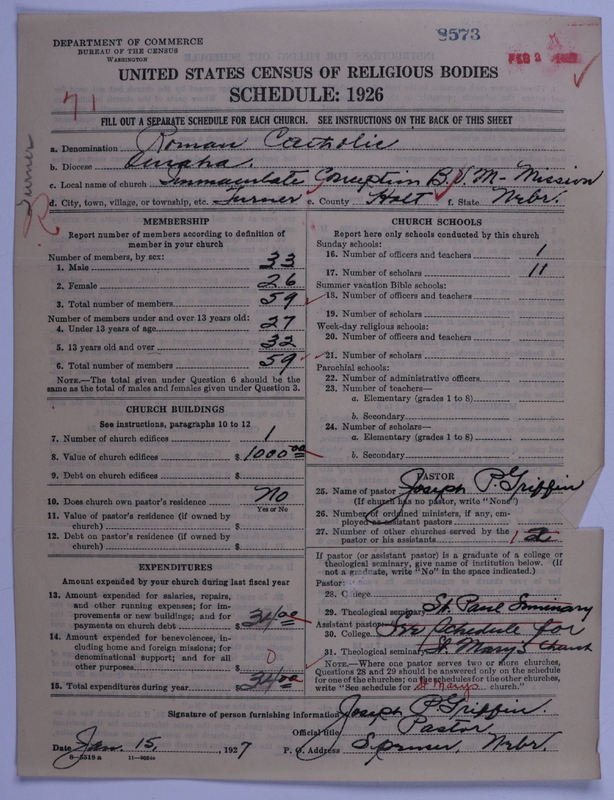 DEPARTMENT OF COMMERCE
BUREAU OF THE CENSUS
WASHINGTON
8573
FEB 2
UNITED STATES CENSUS OF RELIGIOUS BODIES
SCHEDULE: 1926
71
FILL OUT A SEPARATE SCHEDULE FOR EACH CHURCH. SEE INSTRUCTIONS ON THE BACK OF THIS SHEET
Turner
R
a. Denomination Roman Catholic
b. Diocese Omaha.
c. Local name of church Immaculate Conception B.V.M- Mission
d. City, town, village, or township, etc. Turner e. County Holt f. State Nebr.
MEMBERSHIP
Report number of members according to definition of member in your church
Number of members, by sex:
1. Male 33
2. Female 26
3. Total number of members 59
Number of members under and over 13 years old:
4. Under 13 years of age 27
5. 13 years old and over 32
6. Total number of members 59
NOTE.—The total given under Question 6 should be the
same as the total of males and females given under Question 3.
CHURCH BUILDINGS
See instructions, paragraphs 10 to 12
7. Number of church edifices 1
8. Value of church edifices $ 1000 00
9. Debt on church edifices $
10. Does church own pastor's residence No
Yes or No
11. Value of pastor's residence (if owned by
church) $
12. Debt on pastor's residence (if owned by
church) $
EXPENDITURES
Amount expended by your church during last fiscal year
13. Amount expended for salaries, repairs,
and other running expenses; for im-
provements or new buildings; and for
payments on church debt $ 34 00
14. Amount expended for benevolences, in-
cluding home and foreign missions; for
denominational support; and for all
other purposes 0
15. Total expenditures during year $ 34 00
CHURCH SCHOOLS
Report here only schools conducted by this church
Sunday schools:
16. Number of officers and teachers 1
17. Number of scholars 11
Summer vacation Bible schools:
18. Number of officers and teachers
19. Number of scholars
Week-day religious schools:
20. Number of officers and teachers
21. Number of scholars
Parochial schools:
22. Number of administrative officers
23. Number of teachers—
a. Elementary (grades 1 to 8)
b. Secondary
24. Number of scholars—
a. Elementary (grades 1 to 8)
b. Secondary
PASTOR
25. Name of pastor Joseph P. Griffin
(If church has no pastor, write "None")
26. Number of ordained ministers, if any, em-
ployed as assistant pastors
27. Number of other churches served by the
pastor or his assistants
If pastor (or assistant pastor) is a graduate of a college or
theological seminary, give name of institution below. (If
not a graduate, write "No" in the space indicated.)
Pastor:
28. College
29. Theological seminary St. Paul Seminary
Assistant pastor:
30. College See Schedule for
31. Theological seminary St. Mary's Church
NOTE.—Where one pastor serves two or more churches,
Questions 28 and 29 should be answered only on the schedule
for one of the churches; on the schedules for the other churches,
write "See schedule for St Marys church."
Signature of person furnishing information Joseph P. Griffin.
Official title Pastor
Date Jan. 15, 1927 P. O. Address Spencer, Nebr.
8—5518a 11—9024